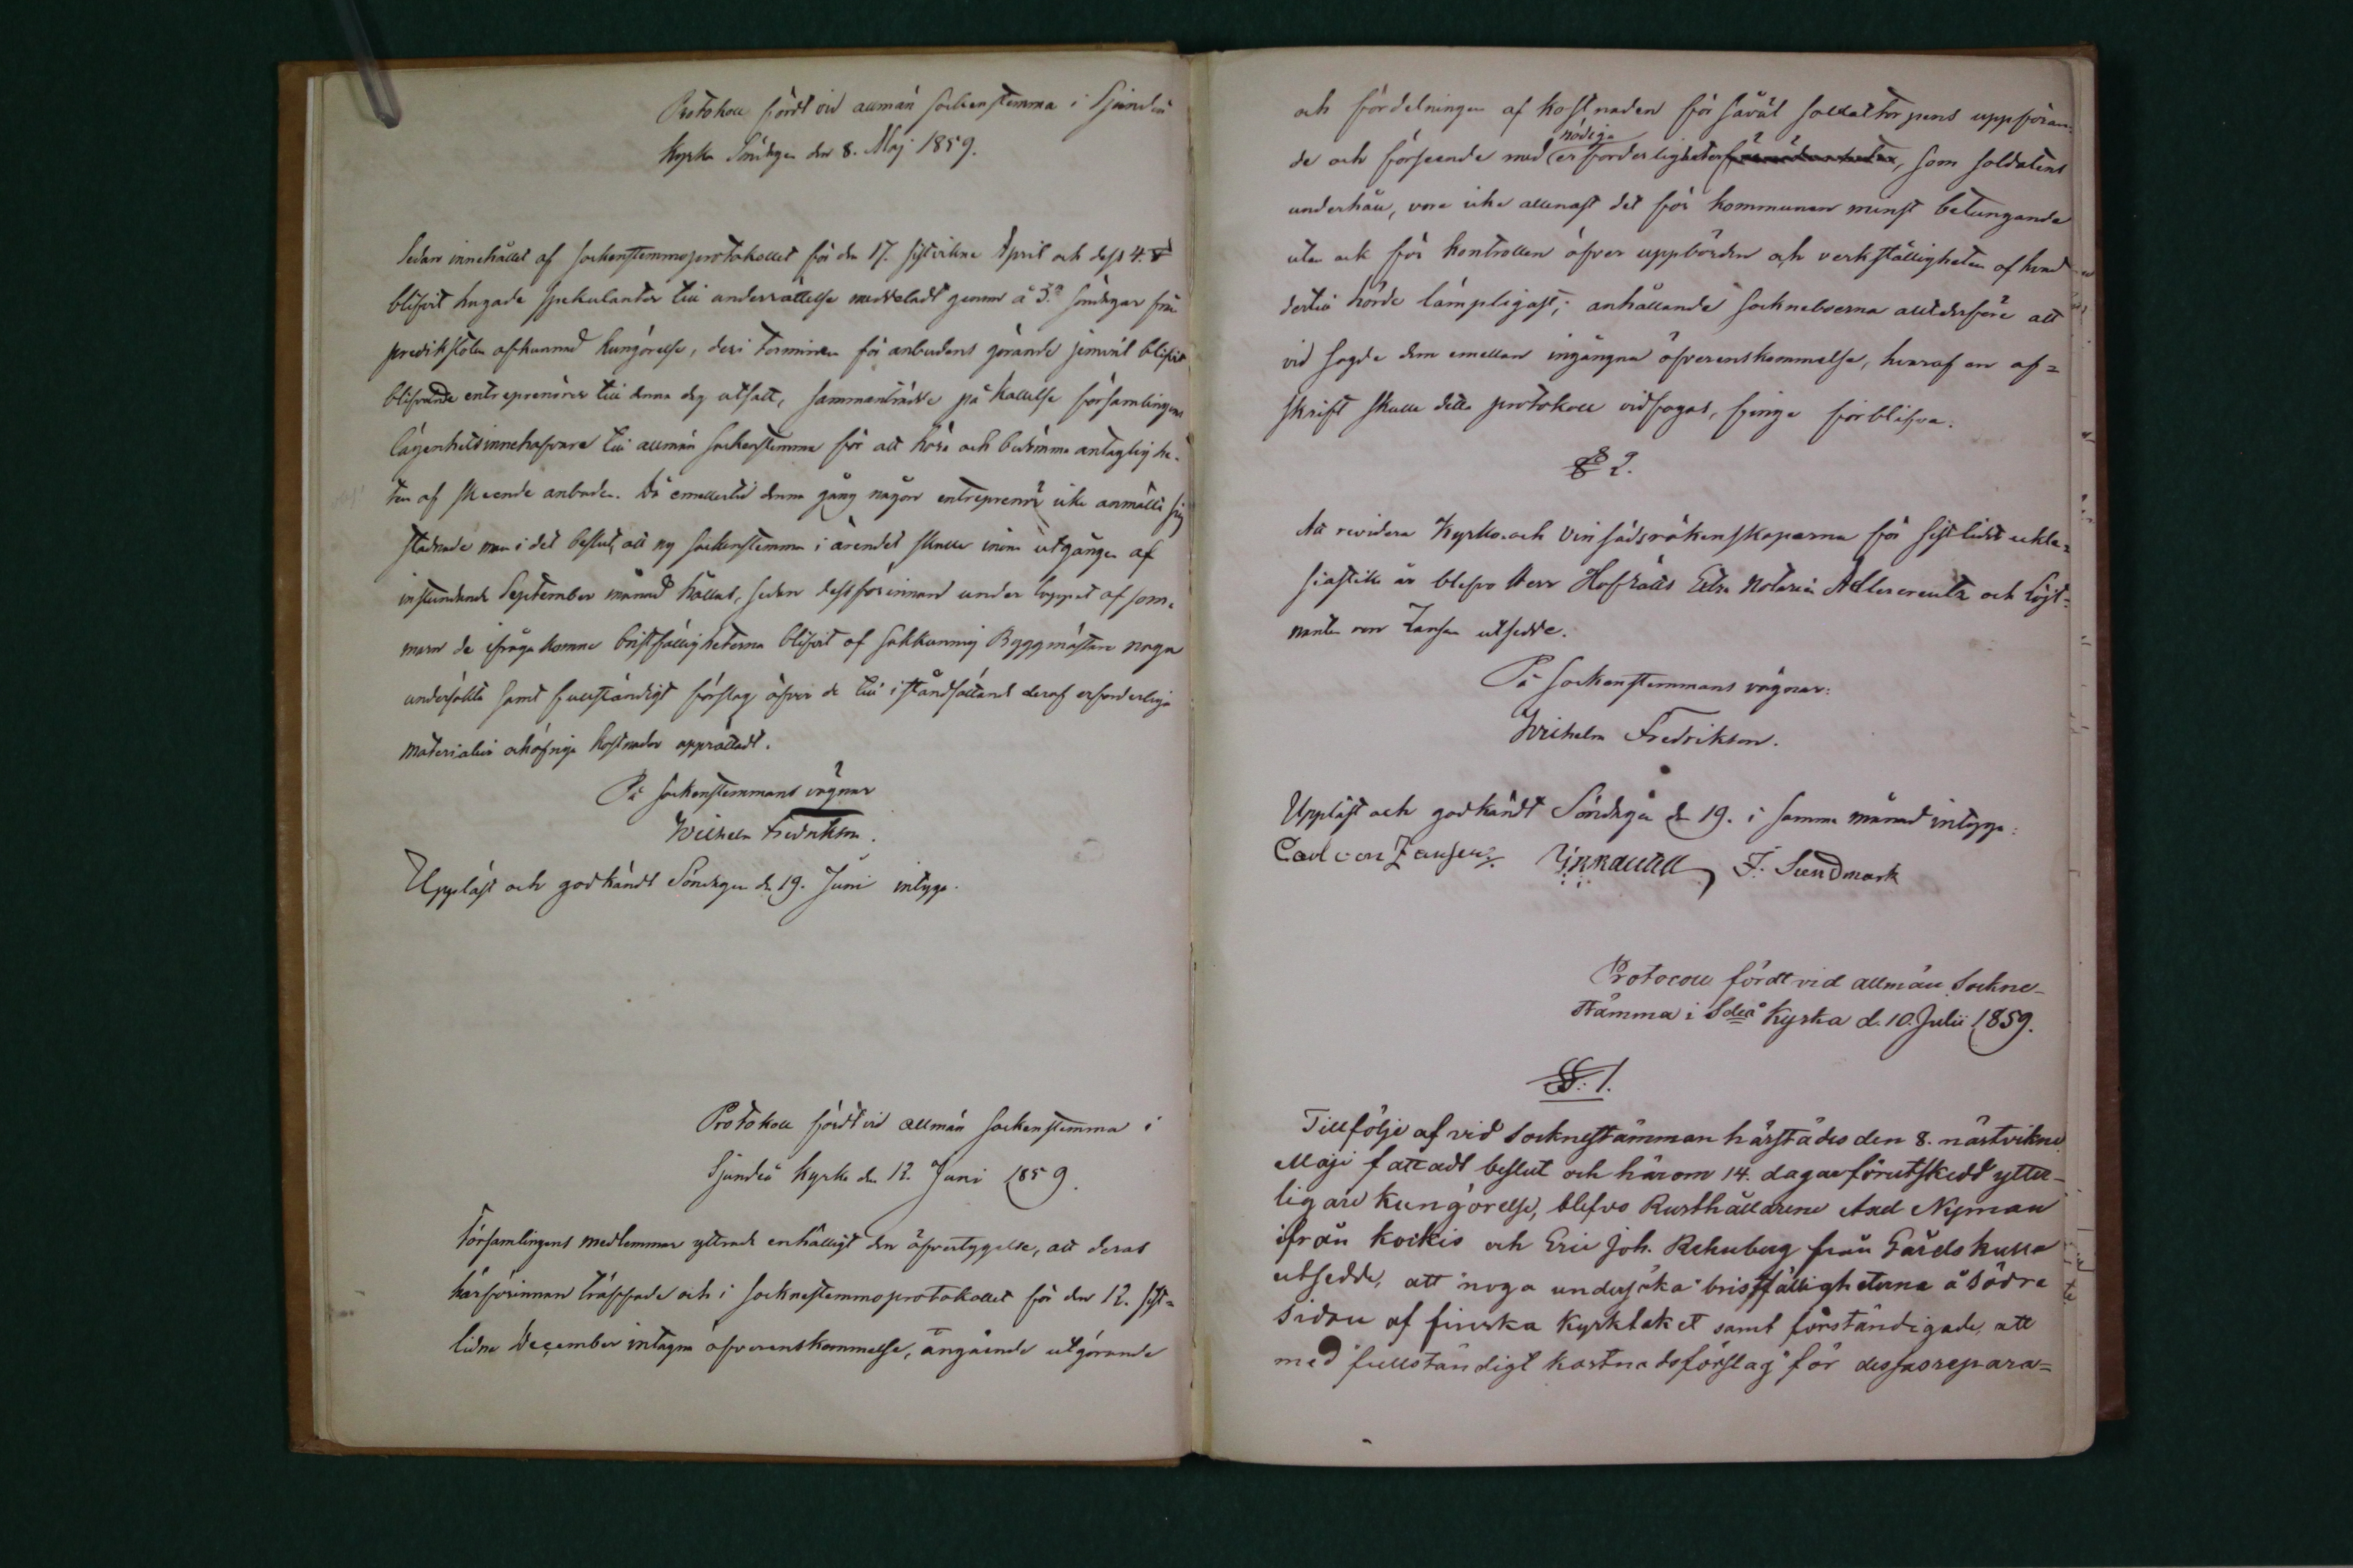 Protokoll fördt vid allmän sockenstemma i Sjundeå
kyrka Söndagen den 8. Maj 1859.
Sedan innehållet af sockenstemmoprotokollet för den 17. sistvikne April och dess 4. §
blifvit hugade spekulanter till underrättelse meddeladt genom å 3ne söndagar från
predikstolen afkunnad kungörelse, deri terminen för anbudens görande jemväl blifvit
blifvande entreprenörer till denna dag utsatt, sammanträdde på kallelse församlingens
lägenhetsinnehafvare till allmän sockenstemma för att höra och bedömma antaglighe-
ten af skeende anbuden. Då emellertid denna gång någon entreprenör icke anmällt sig
stadnade man i det beslut, att ny sockenstemma i ärendet skulle inom utgången af
instundande September månad hållas, sedan dessförinnan under loppet af som-
maren de ifrågakomne bristfälligheterna blifvit af sakkunnig Byggmästare noga
undersökta samt fullständigt förslag öfver de till iståndsättand deraf erforderliga
materialier och öfriga kostnader upprättadt.
På sockenstemmans vägnar
Wilhelm Fredrikson.
Uppläst och godkändt Söndagen den 19. Juni intyga.
Protokoll fördt vid allmän sockenstemma i
Sjundeå kyrka den 12. Juni 1859.
Församlingens medlemmar yttrade enhälligt den öfvertygelse, att deras
härförinnan träffade och i socknestemmoprotokollet för den 12. sist-
lidne December intagna öfverenskommelse, angående utgörande
och fördelningen af kostnaden för såväl soldattorpens uppföran-
de och förseende med nödiga erforderligheter, som soldatens
underhåll, vore icke allenast det för kommunen minst betungande
utan ock för kontrollen öfver uppbörden och verkställigheten af hvad
dertill hörde lämpligast; anhållande sockneboerna alltderföre att
vid sagde dem emellan ingångna öfverenskommelse, hvaraf en af=
skrift skulle detta protokoll vidfogas, finge förblifva.
§ 2.
Att revidera Kyrko- och Vinsädsräkenskaperna för sistlidit eckle-
siastikt år blefvo Herr Hofrätts Extra Notarien Adlercreutz och Löjt-
nanten von Zansen utsedde.
På sockenstemmans vägnar:
Wilhelm Fredrikson.
Uppläst och godkändt Söndagen den 19. i samma månad intyga:
Carl von Zansen. F. Sundmark
Protocoll fördt vid allmän Sockne-
stämma i Sdeå Kyrka d. 10. Julii 1859.
§. 1.
Till följe af vid Socknestämman härstädes den 8. nästvikne
Maji fattadt beslut och härom 14. dagar förutskedd ytter-
ligare kungörelse, blefvo Rusthållarene Axel Nyman
ifrån Kockis och Eric Joh. Rehnberg från Gårdskulla
utsedde, att "noga undersöka" bristfälligheterna å södra
sidan af finska Kyrktaket samt förständigade, att
med "fullständigt kostnadsförslag" för dessas repara=